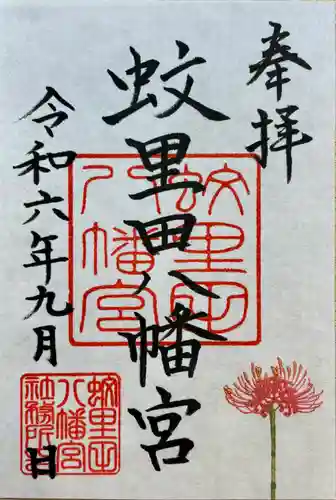 奉拝
蚊里田八幡宮
令和六年九月
日
蚊里田
八幡宮
蚊里田
八幡宮
社務所